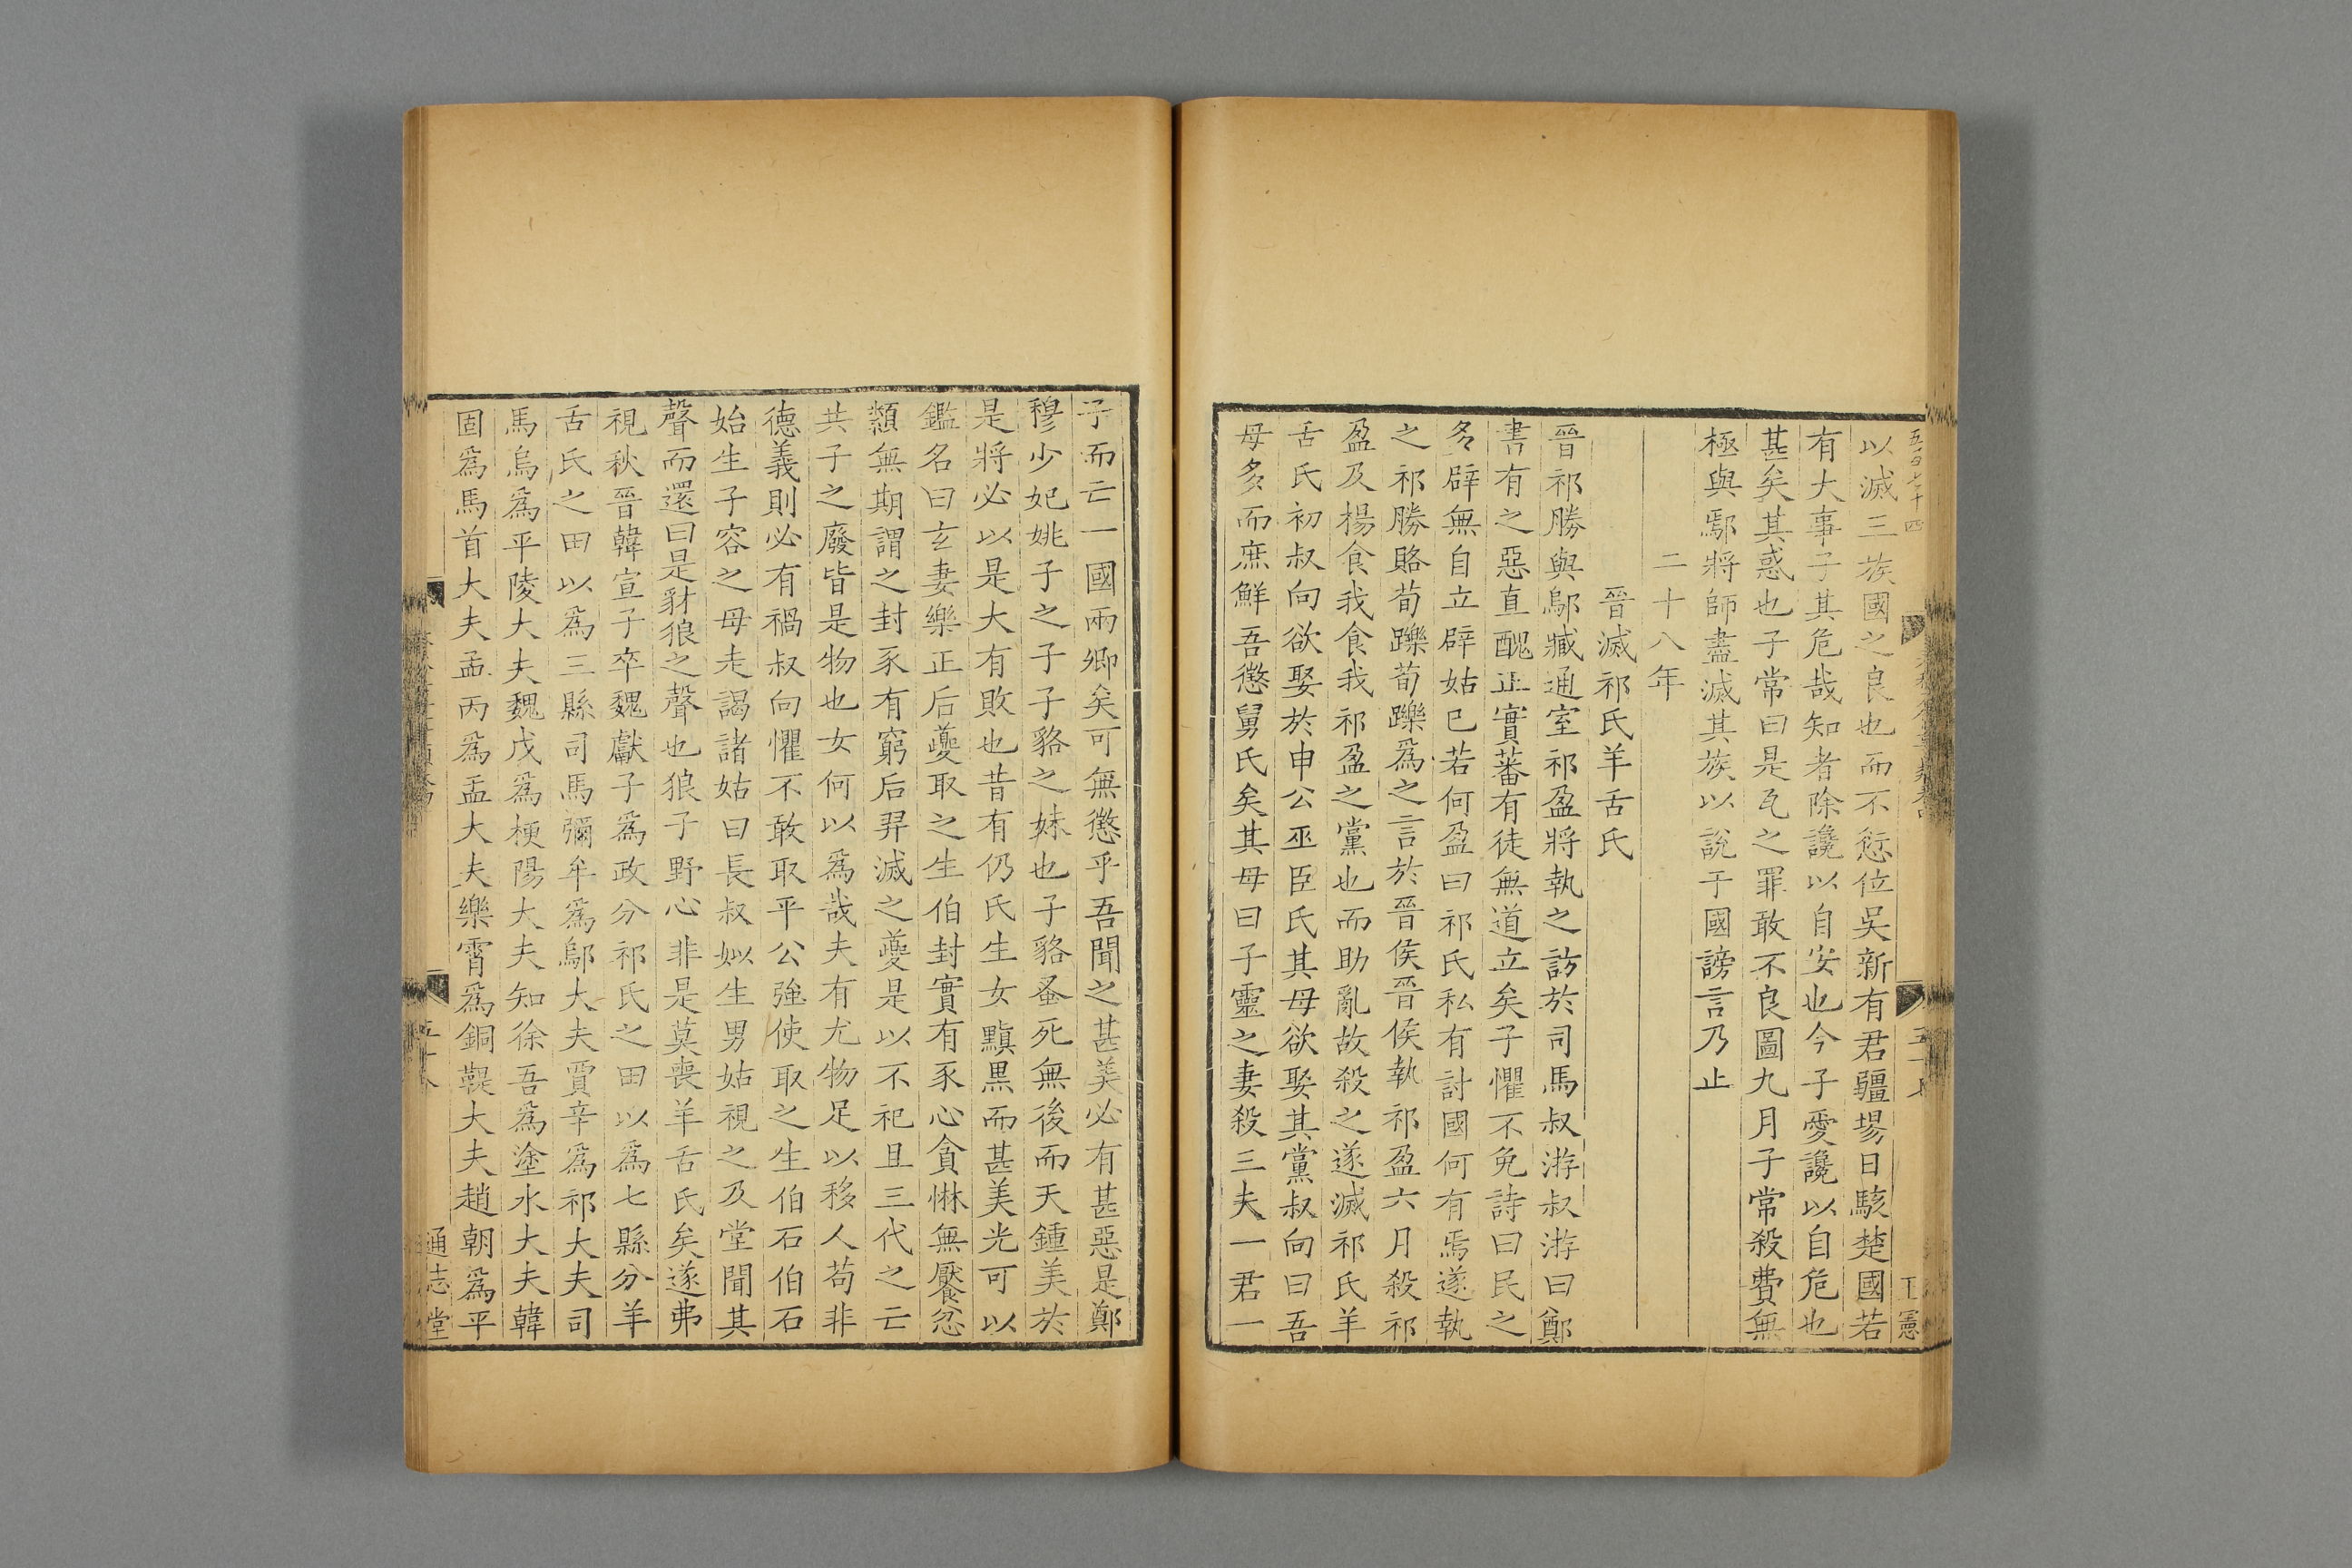 五百七十四
以滅三族國之良也而不愆位吳新有君疆埸日駭楚國若
有大事子其危哉知者除讒以自安也今子愛讒以自危也
甚矣其惑也子常曰是瓦之罪敢不良圖九月子常殺費無
極與鄢將師盡滅其族以說于國謗言乃止
二十八年
晉滅祁氏羊舌氏
晉祁勝與鄔臧通室祁盈將執之訪於司馬叔游叔游曰鄭
書有之惡直醜正實蕃有徒無道立矣子懼不免詩曰民之
多辟無自立辟姑已若何盈曰祁氏私有討國何有焉遂執
之祁勝賂荀躒荀躒爲之言於晉侯晉侯執祁盈六月殺祁
盈及楊食我食我祁盈之黨也而助亂故殺之遂滅祁氏羊
舌氏初叔向欲娶於申公巫臣氏其母欲娶其黨叔向曰吾
母多而庶鮮吾懲舅氏矣其母曰子靈之妻殺三夫一君一
王憲
子而亡一國兩卿矣可無懲乎吾聞之甚美必有甚惡是鄭
穆少妃姚子之子子貉之妹也子貉蚤死無後而天鍾美於
是將必以是大有敗也昔有仍氏生女黰黑而甚美光可以
鑑名曰玄妻樂正后夔取之生伯封實有豕心貪惏無饜忿
纇無期謂之封豕有窮后羿滅之夔是以不祀且三代之亡
共子之廢皆是物也女何以爲哉夫有尤物足以移人苟非
德義則必有禍叔向懼不敢取平公強使取之生伯石伯石
始生子容之母走謁諸姑曰長叔姒生男姑視之及堂聞其
聲而還曰是豺狼之聲也狼子野心非是莫喪羊舌氏矣遂弗
視秋晉韓宣子卒魏獻子爲政分祁氏之田以爲七縣分羊
舌氏之田以爲三縣司馬彌牟爲鄔大夫賈辛爲祁大夫司
馬烏爲平陵大夫魏戊爲梗陽大夫知徐吾爲塗水大夫韓
固爲馬首大夫孟丙爲盂大夫樂霄爲銅鞮大夫趙朝爲平
通志堂